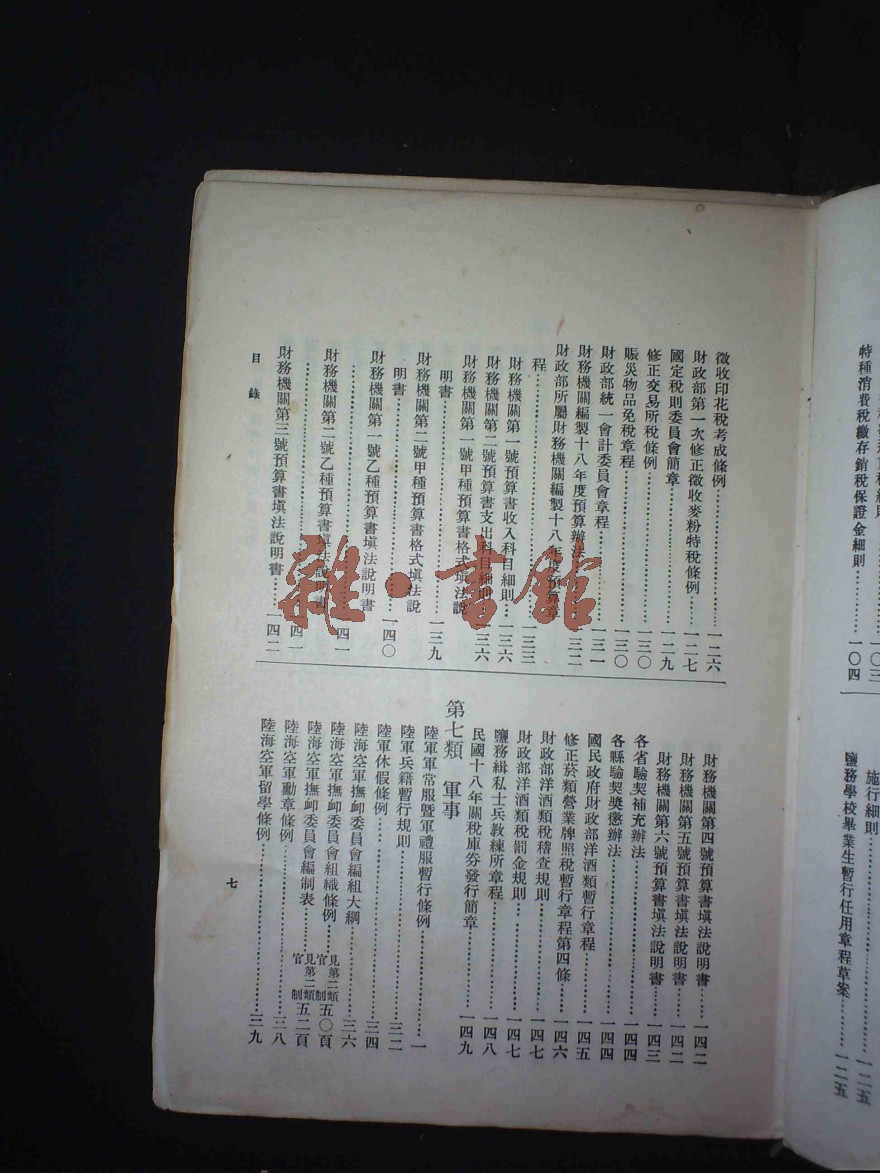 特種消費稅繳存銷稅保證金細則⋯⋯⋯⋯一〇四
施行細則⋯⋯⋯⋯一二五
鹽務學校畢業生暫行任用章程草案⋯⋯⋯⋯一二五
徵收印花稅考成條例⋯⋯⋯⋯一二六
財政部第一次修正徵收麥粉特稅條例⋯⋯⋯⋯一二七
國定稅則委員會簡章⋯⋯⋯⋯一二九
修正交易所稅條例⋯⋯⋯⋯一三〇
賑災物品免稅章程⋯⋯⋯⋯一三〇
財政部統一會計委員會章程⋯⋯⋯⋯一三一
財務機關編製十八年度預算辦法⋯⋯⋯⋯一三二
財政部所屬財務機關編製十八年度預算章
程⋯⋯⋯⋯一三三
財務機關第一號預算書收入科目細則⋯⋯⋯⋯一三六
財務機關第二號預算書支出科目細則⋯⋯⋯⋯一三六
財務機關第一號甲種預算書格式填法說
明書⋯⋯⋯⋯一三九
財務機關第二號甲種預算書格式填法說
明書⋯⋯⋯⋯一四〇
財務機關第一號乙種預算書填法說明書
⋯⋯⋯⋯一四一
財務機關第二號乙種預算書填法說明書
⋯⋯⋯⋯一四一
財務機關第三號預算書填法說明書⋯⋯⋯⋯一四二
目錄
財務機關第四號預算書填法說明書⋯⋯⋯⋯一四二
財務機關第五號預算書填法說明書⋯⋯⋯⋯一四二
財務機關第六號預算書填法說明書⋯⋯⋯⋯一四三
各省驗契補充辦法⋯⋯⋯⋯一四四
各縣驗契獎懲辦法⋯⋯⋯⋯一四四
國民政府財政部洋酒類暫行章程⋯⋯⋯⋯一四五
修正菸類營業牌照稅暫行章程第四條⋯⋯⋯⋯一四六
財政部洋酒類稅稽查規則⋯⋯⋯⋯一四七
財政部洋酒類稅罰金規則⋯⋯⋯⋯一四七
鹽務緝私士兵教練所章程⋯⋯⋯⋯一四八
民國十八年關稅庫券發行簡章⋯⋯⋯⋯一四九
第七類 軍事
陸軍軍常服暨軍禮服暫行條例⋯⋯⋯⋯一
陸軍兵籍暫行規則⋯⋯⋯⋯三二
陸軍休假條例⋯⋯⋯⋯三四
陸海空軍撫卹委員會編組大綱⋯⋯⋯⋯三六
陸海空軍撫卹委員會組織條例⋯⋯⋯⋯見第二類官制五〇頁
陸海空軍撫卹委員會編制表⋯⋯⋯⋯見第二類官制五二頁
陸海空軍勳章條例⋯⋯⋯⋯三八
陸海空軍留學條例⋯⋯⋯⋯三九
七
雜·書館